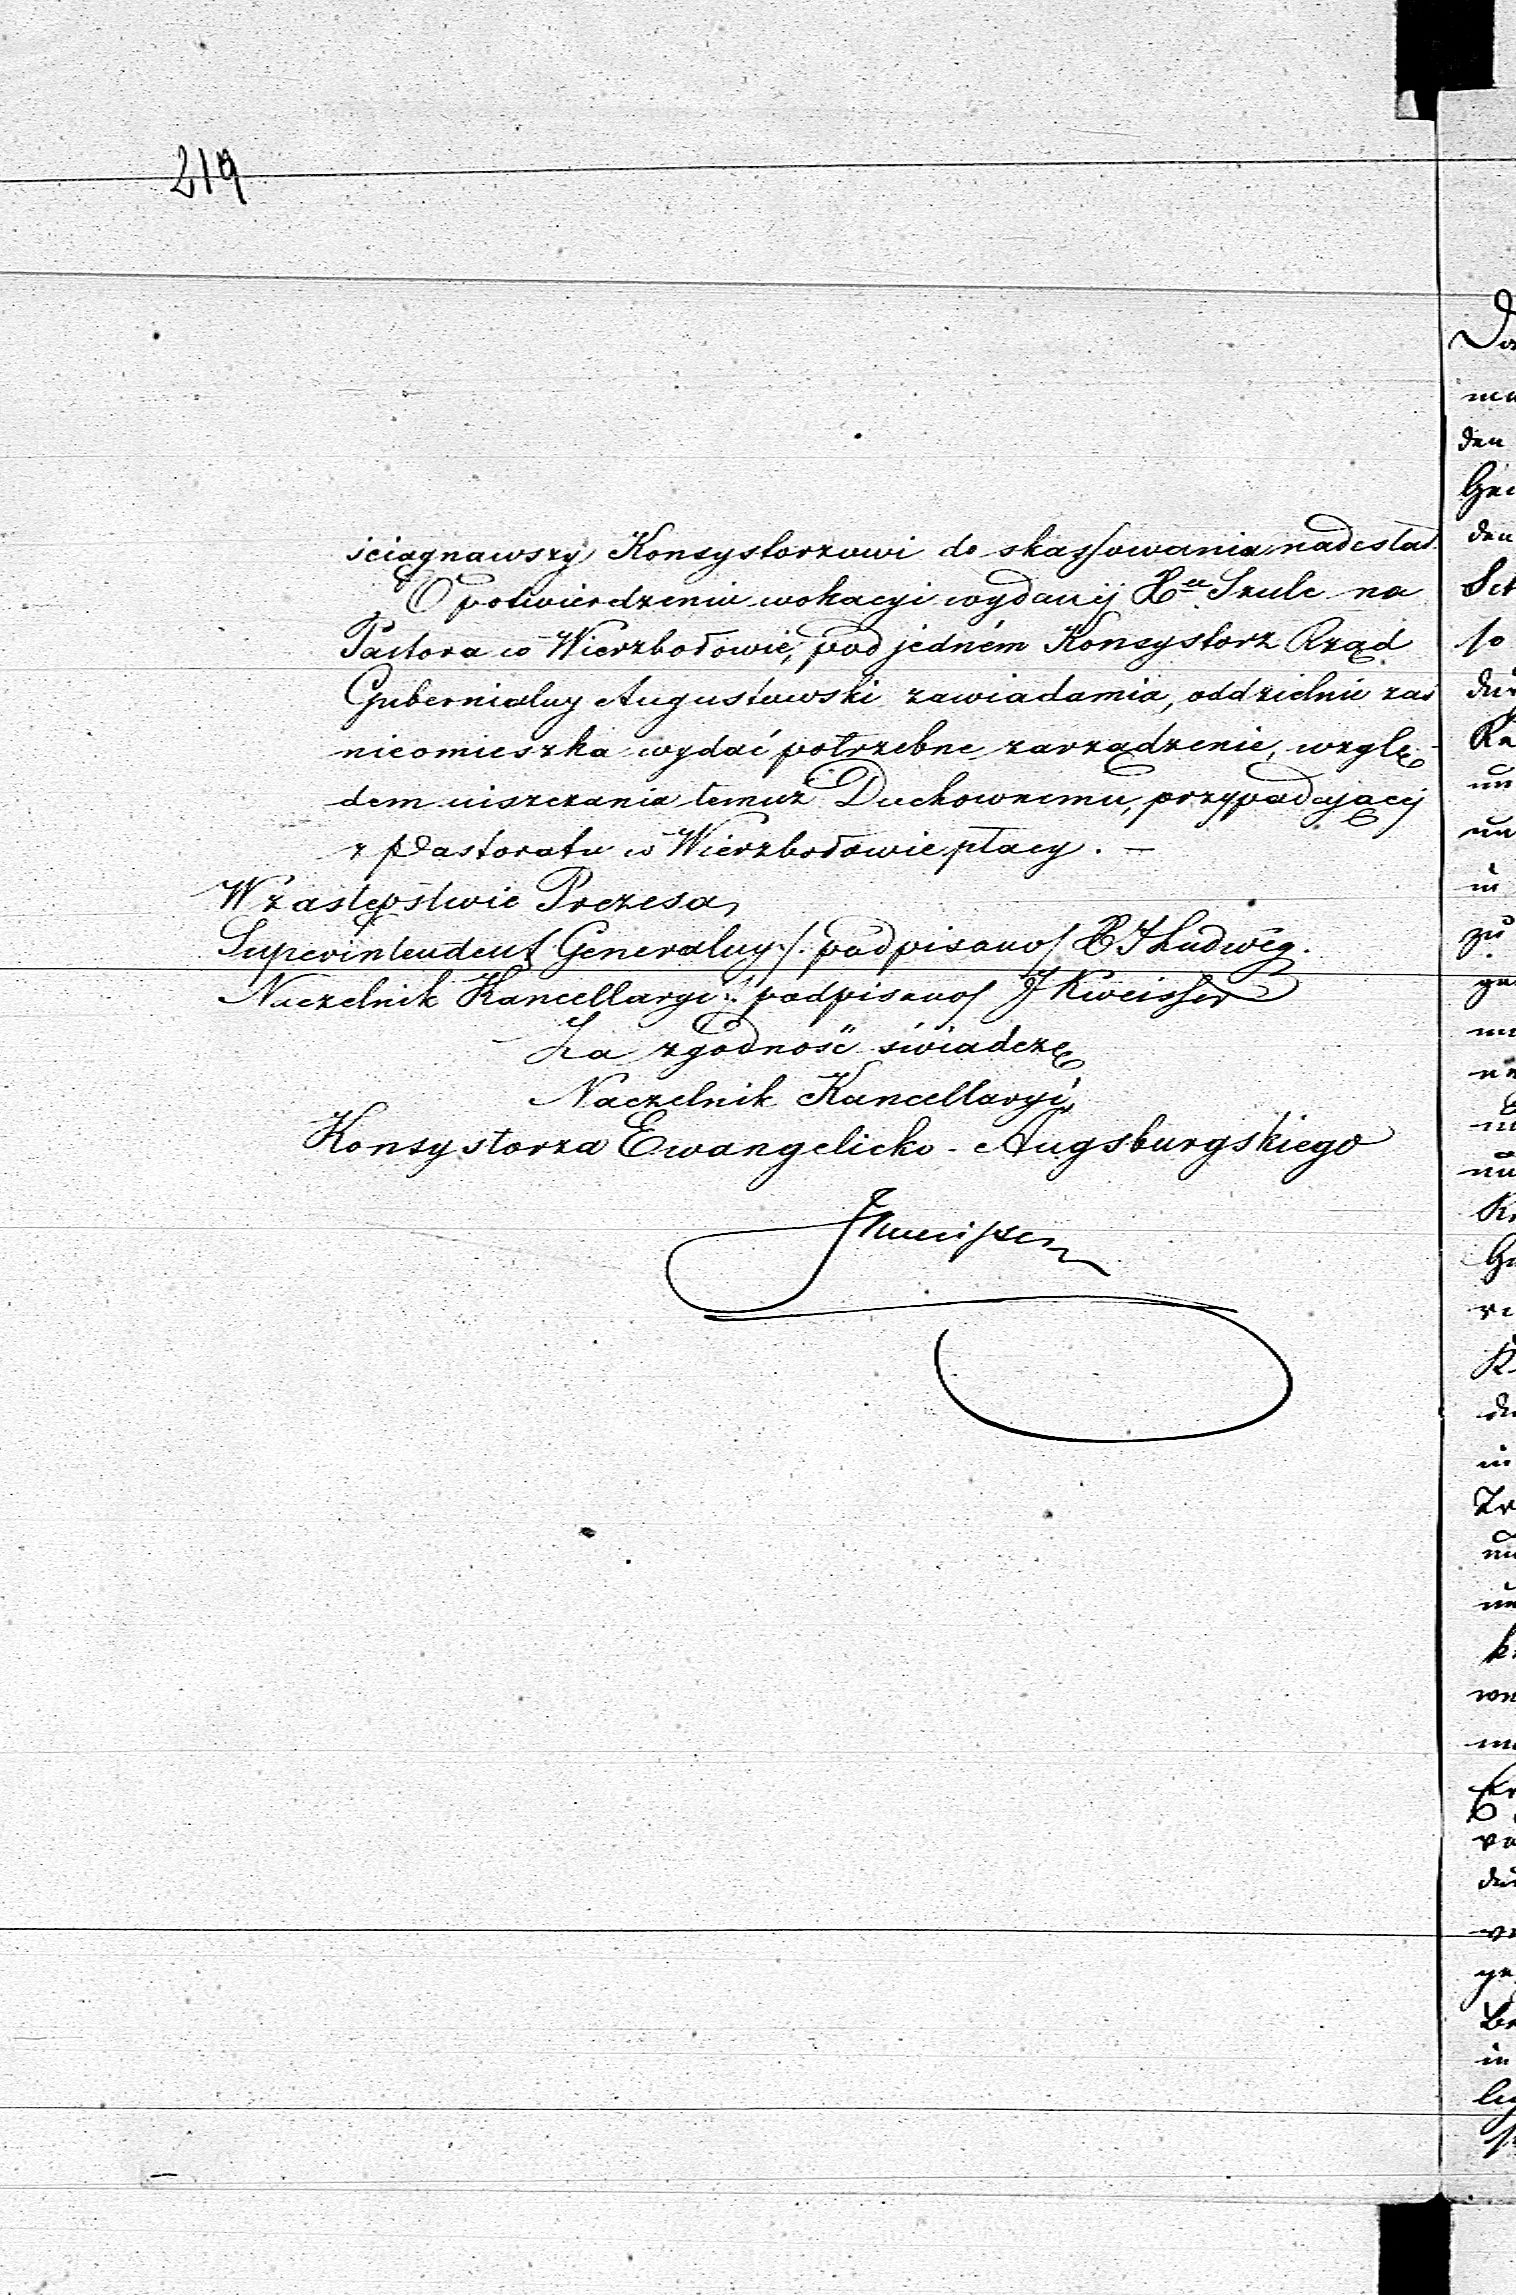 219
ściągnawszy Konsystorzowi do skassowania nadesłał.
O potwierdzeniu wokacyi wydanéj Xu Szulc na
Pastora w Wierzbołowie, pod jedném Konsystorz Rząd
Gubernialny Augustowski zawiadamia, oddzielnie zaś
nieomieszka wydać potrzebne zarządzenie, wzglę-
dem uiszczania temuż Duchownemu, przypadającéj
z Pastoratu w Wierzbołowie płacy. —
W zastępstwie Prezesa,
Superintendent Generalny /: podpisano/ X J Ludwig.
Naczelnik Kancellaryi /: podpisano/ J Kweisser
Za zgodność świadczę
Naczelnik Kancellaryi,
Konsystorza Ewangelicko-Augsburgskiego
den
den
so
un
in
zu
in
in